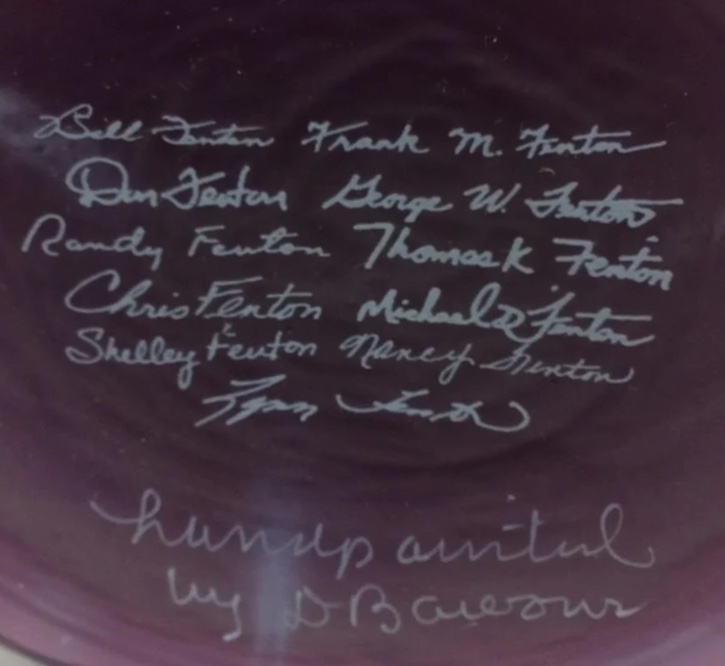 Bill Fenton Frank M. Fenton
Don Fenton George W. Fenton
Randy Fenton Thomas K Fenton
Chris Fenton Michael D Fenton
Shelley Fenton Nancy Fenton
Lynn Fenton
handpainted
by D Barbour